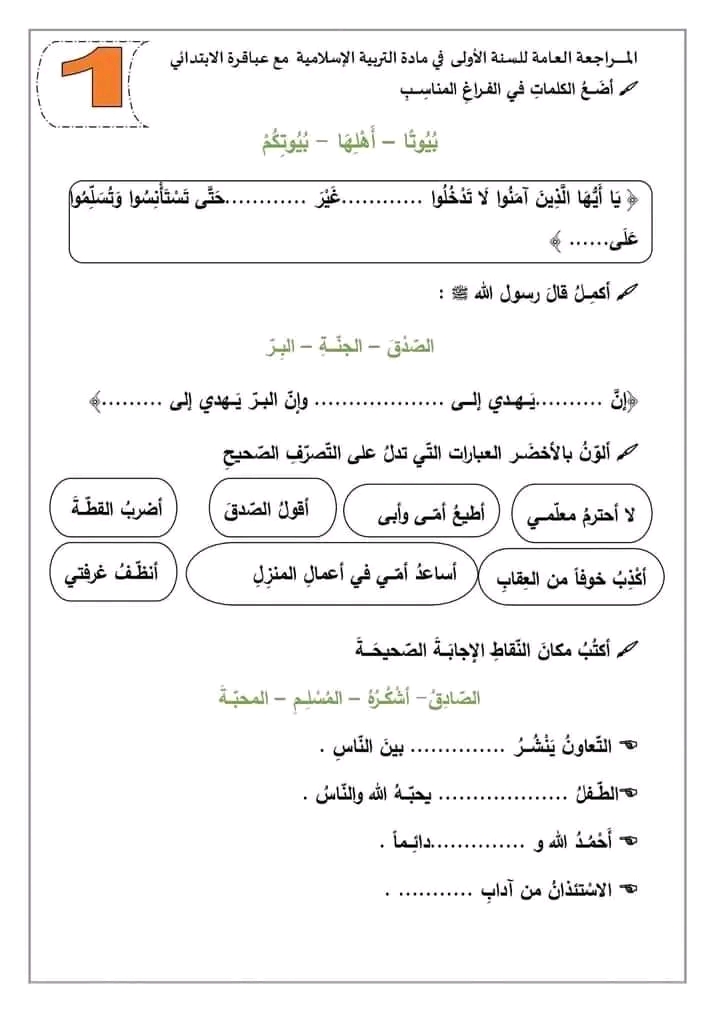 1
المـراجعة العامة للسنة الأولى في مادة التربية الإسلامية مع عباقرة الابتدائي
أضَـعُ الكلماتِ في الفـراغِ المناسِـبِ
بُيُوتًا – أَهْلِهَا – بُيُوتِكُمْ
﴿ يَا أَيُّهَا الَّذِينَ آمَنُوا لَا تَدْخُلُوا ............غَيْرَ ............حَتَّى تَسْتَأْنِسُوا وَتُسَلِّمُوا
عَلَى...... ﴾
أكمِـلُ قالَ رسول الله ﷺ :
الصّدْقَ – الجنّــةِ – البِـرّ
﴿إنَّ ..........يَـهـدي إلــى ................... وإنّ البـرّ يَـهدي إلى .........﴾
ألوّنُ بالأخضَـر العبارات التّي تدلُ على التّصرّفِ الصّحيحِ
لا أحترمُ معلّمـي
أطيعُ أمّـى وأبى
أقولُ الصّدقَ
أضربُ القطّـةَ
أكْذِبُ خوفاً من العِقابِ
أساعدُ أمّـي في أعمالِ المنزِلِ
أنظّـفُ غرفتي
أكتُبُ مكانَ النّقاطِ الإجابَـةَ الصّحيحَــةَ
الصّادِقُ– أشْكُـرُهُ – المُسْلِـمِ – المحبّـةَ
التّعاونُ يَنْشُــرُ .............. بينَ النّاسِ .
الطّـفلُ ................... يحبّـهُ الله والنّاسُ .
أَحْمُـدُ الله و ..............دائِـماً .
الاسْتئذانُ من آدابِ ........... .